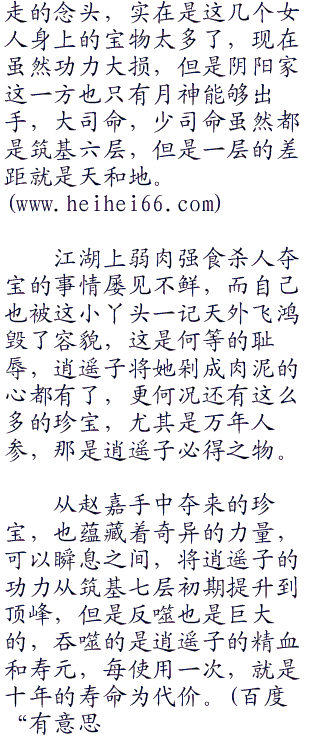 走的念头，实在是这几个女
人身上的宝物太多了，现在
虽然功力大损，但是阴阳家
这一方也只有月神能够出
手，大司命，少司命虽然都
是筑基六层，但是一层的差
距就是天和地。
(www.heihei66.com)
江湖上弱肉强食杀人夺
宝的事情屡见不鲜，而自己
也被这小丫头一记天外飞鸿
毁了容貌，这是何等的耻
辱，逍遥子将她剁成肉泥的
心都有了，更何况还有这么
多的珍宝，尤其是万年人
参，那是逍遥子必得之物。
从赵嘉手中夺来的珍
宝，也蕴藏着奇异的力量，
可以瞬息之间，将逍遥子的
功力从筑基七层初期提升到
顶峰，但是反噬也是巨大
的，吞噬的是逍遥子的精血
和寿元，每使用一次，就是
十年的寿命为代价。(百度
“有意思